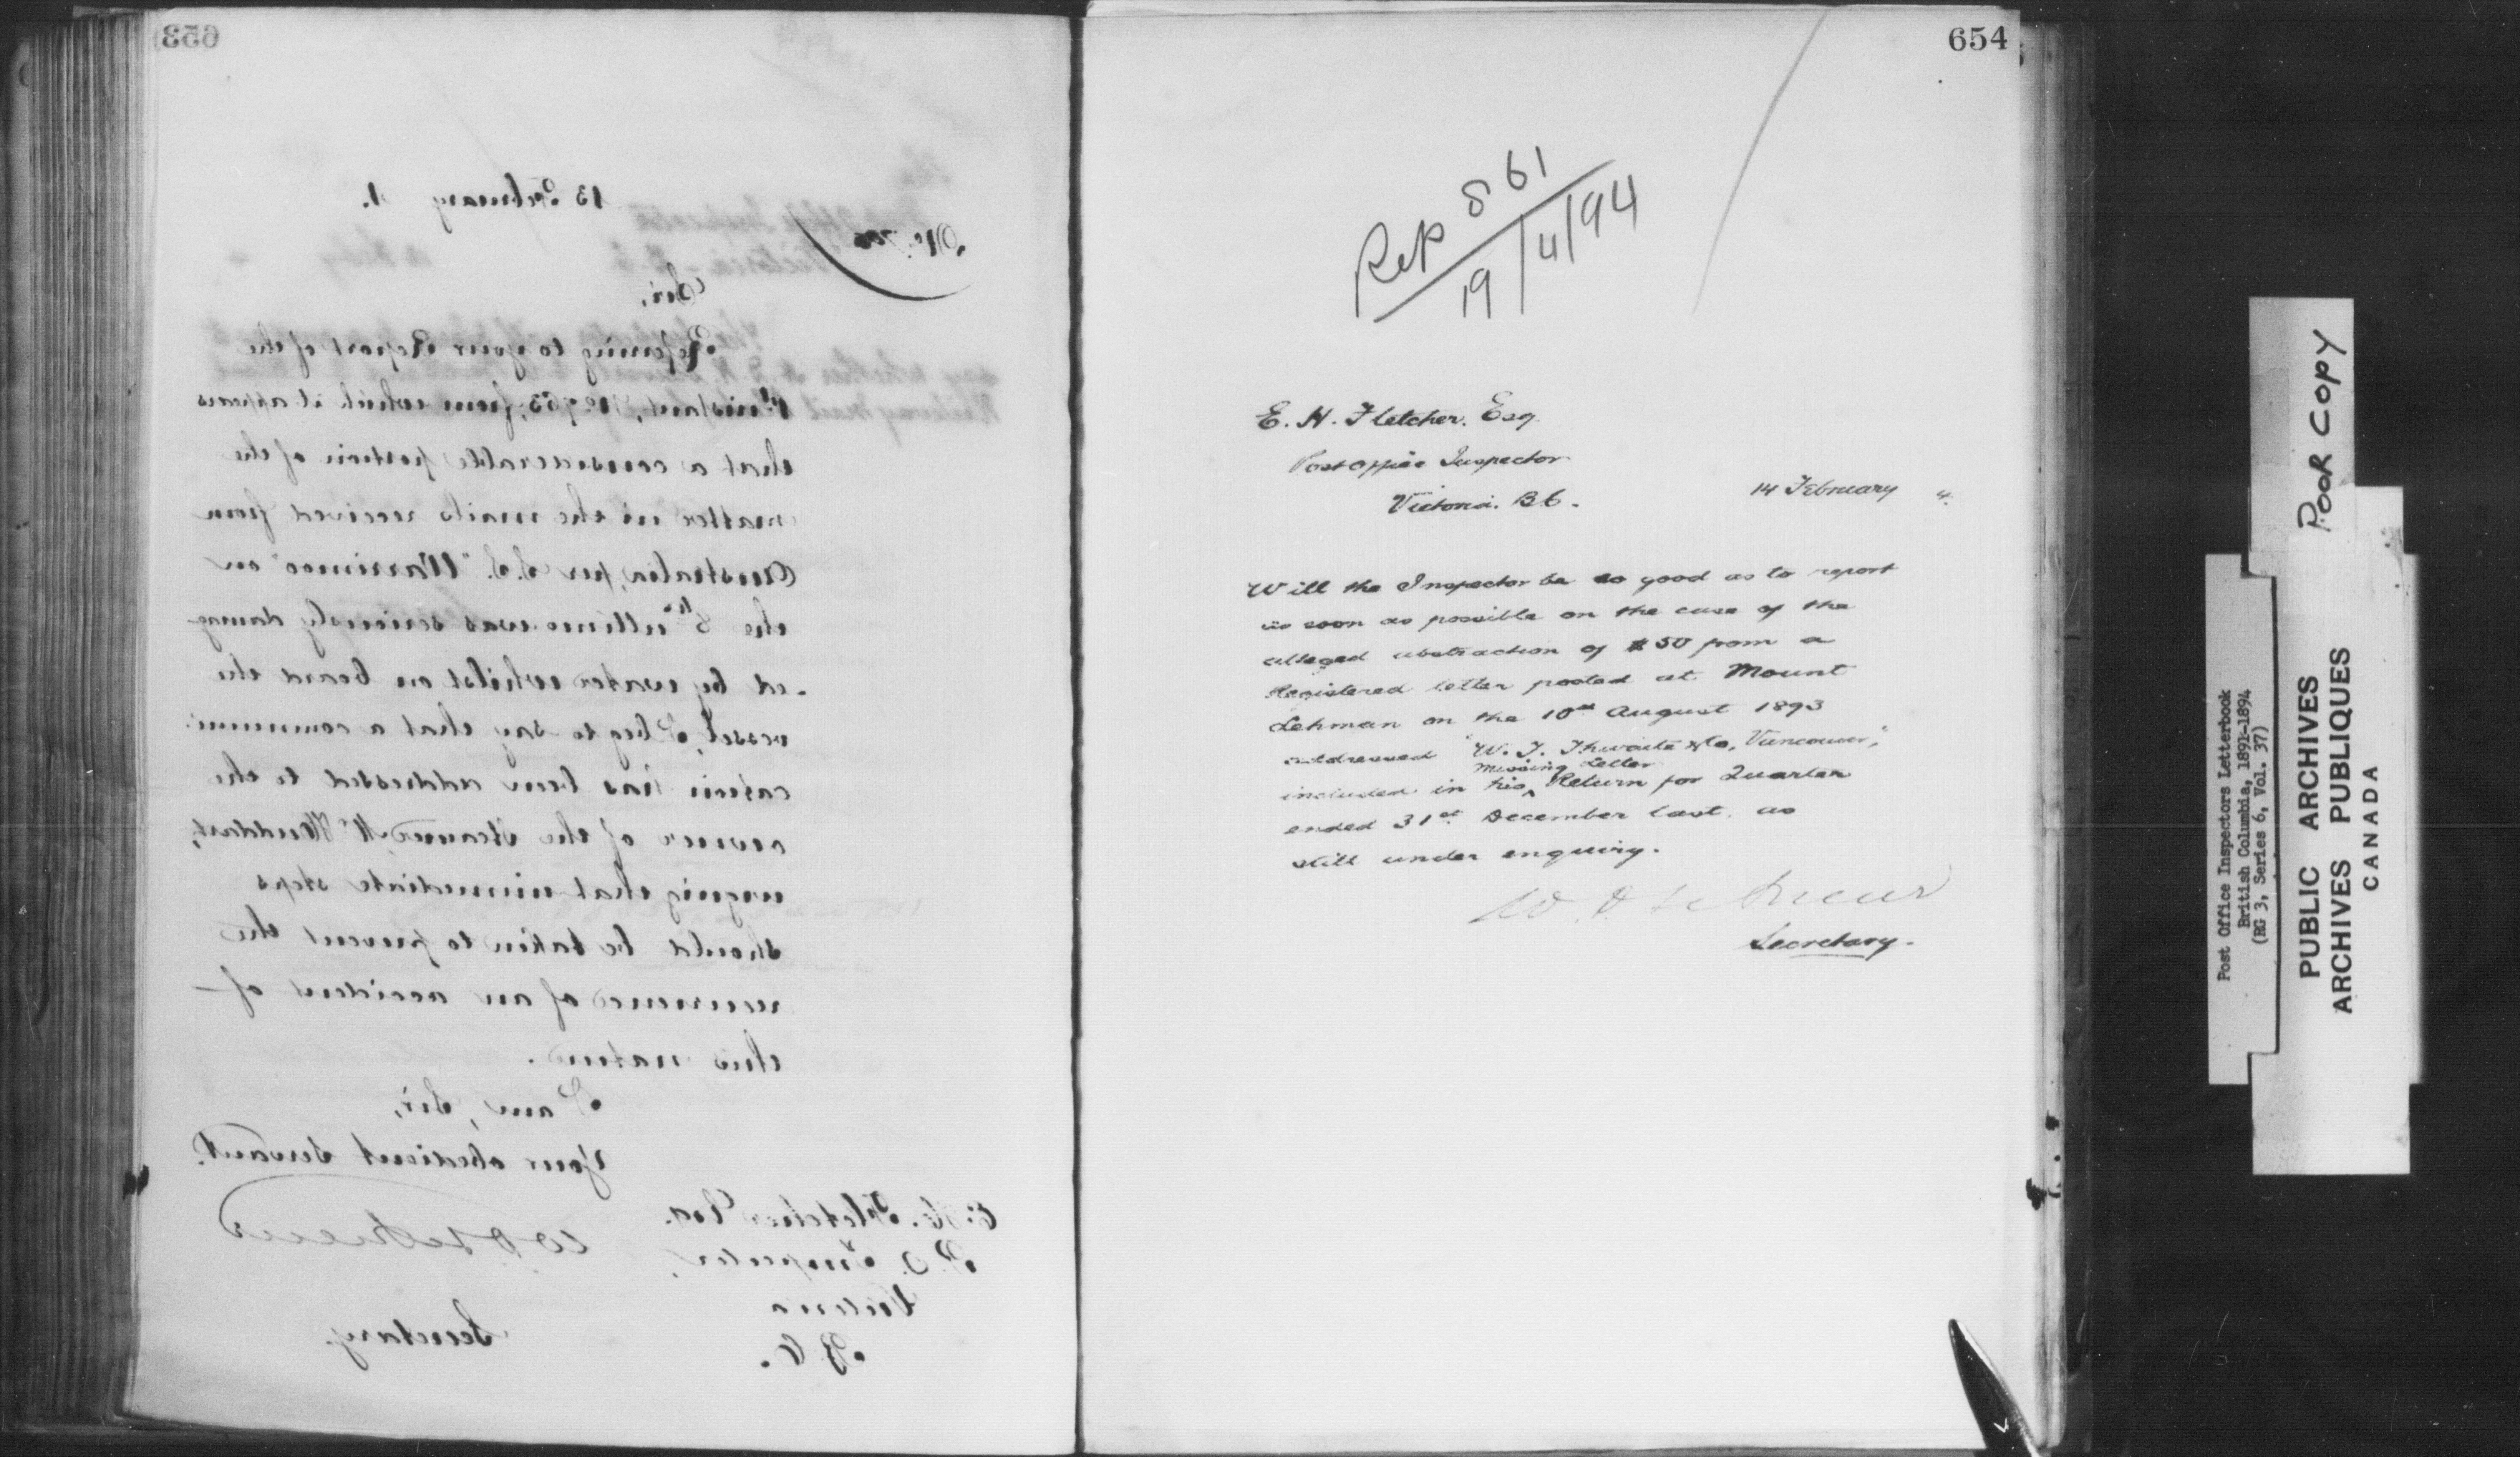 653
13 February 4.
No. 700
Sir,
Referring to your Report of the
1st instant, No 753, from which it appears
that a considerable portion of the
matter in the mails received from
Australia, per S.S. "Warrimoo" on
the 8th ultimo was seriously damag
-ed by water whilst on board the
vessel, I beg to say that a communi-
cation has been addressed to the
owner of the Steamer Mr Huddart,
urging that immediate steps
should be taken to prevent the
recurrence of an accident of
this nature.
I am, Sir,
Your obedient Servant.
E. H. Fletcher Esq.
P.O. Inspector,
Victoria
B C.
W D LeSueur
Secretary.
654
Rep 861
19/4/94
E. H. Fletcher. Esq.
Post Office Inspector
Victoria. B C.
14 February 4.
Will the Inspector be so good as to report
as soon as possible on the case of the
alleged abstraction of $50 from a
Registered letter posted at Mount
Lehman on the 10th August 1893
addressed "W. J. Thwaite & Co, Vancouver,"
missing Letter
included in his ^ Return for Quarter
ended 31st December last. as
still under enquiry.
W. D LeSueur
Secretary.
POOR COPY
Post Office Inspectors Letterbook
British Columbia, 1891-1894
(RG 3, Series 6, Vol. 37)
PUBLIC ARCHIVES
ARCHIVES PUBLIQUES
CANADA